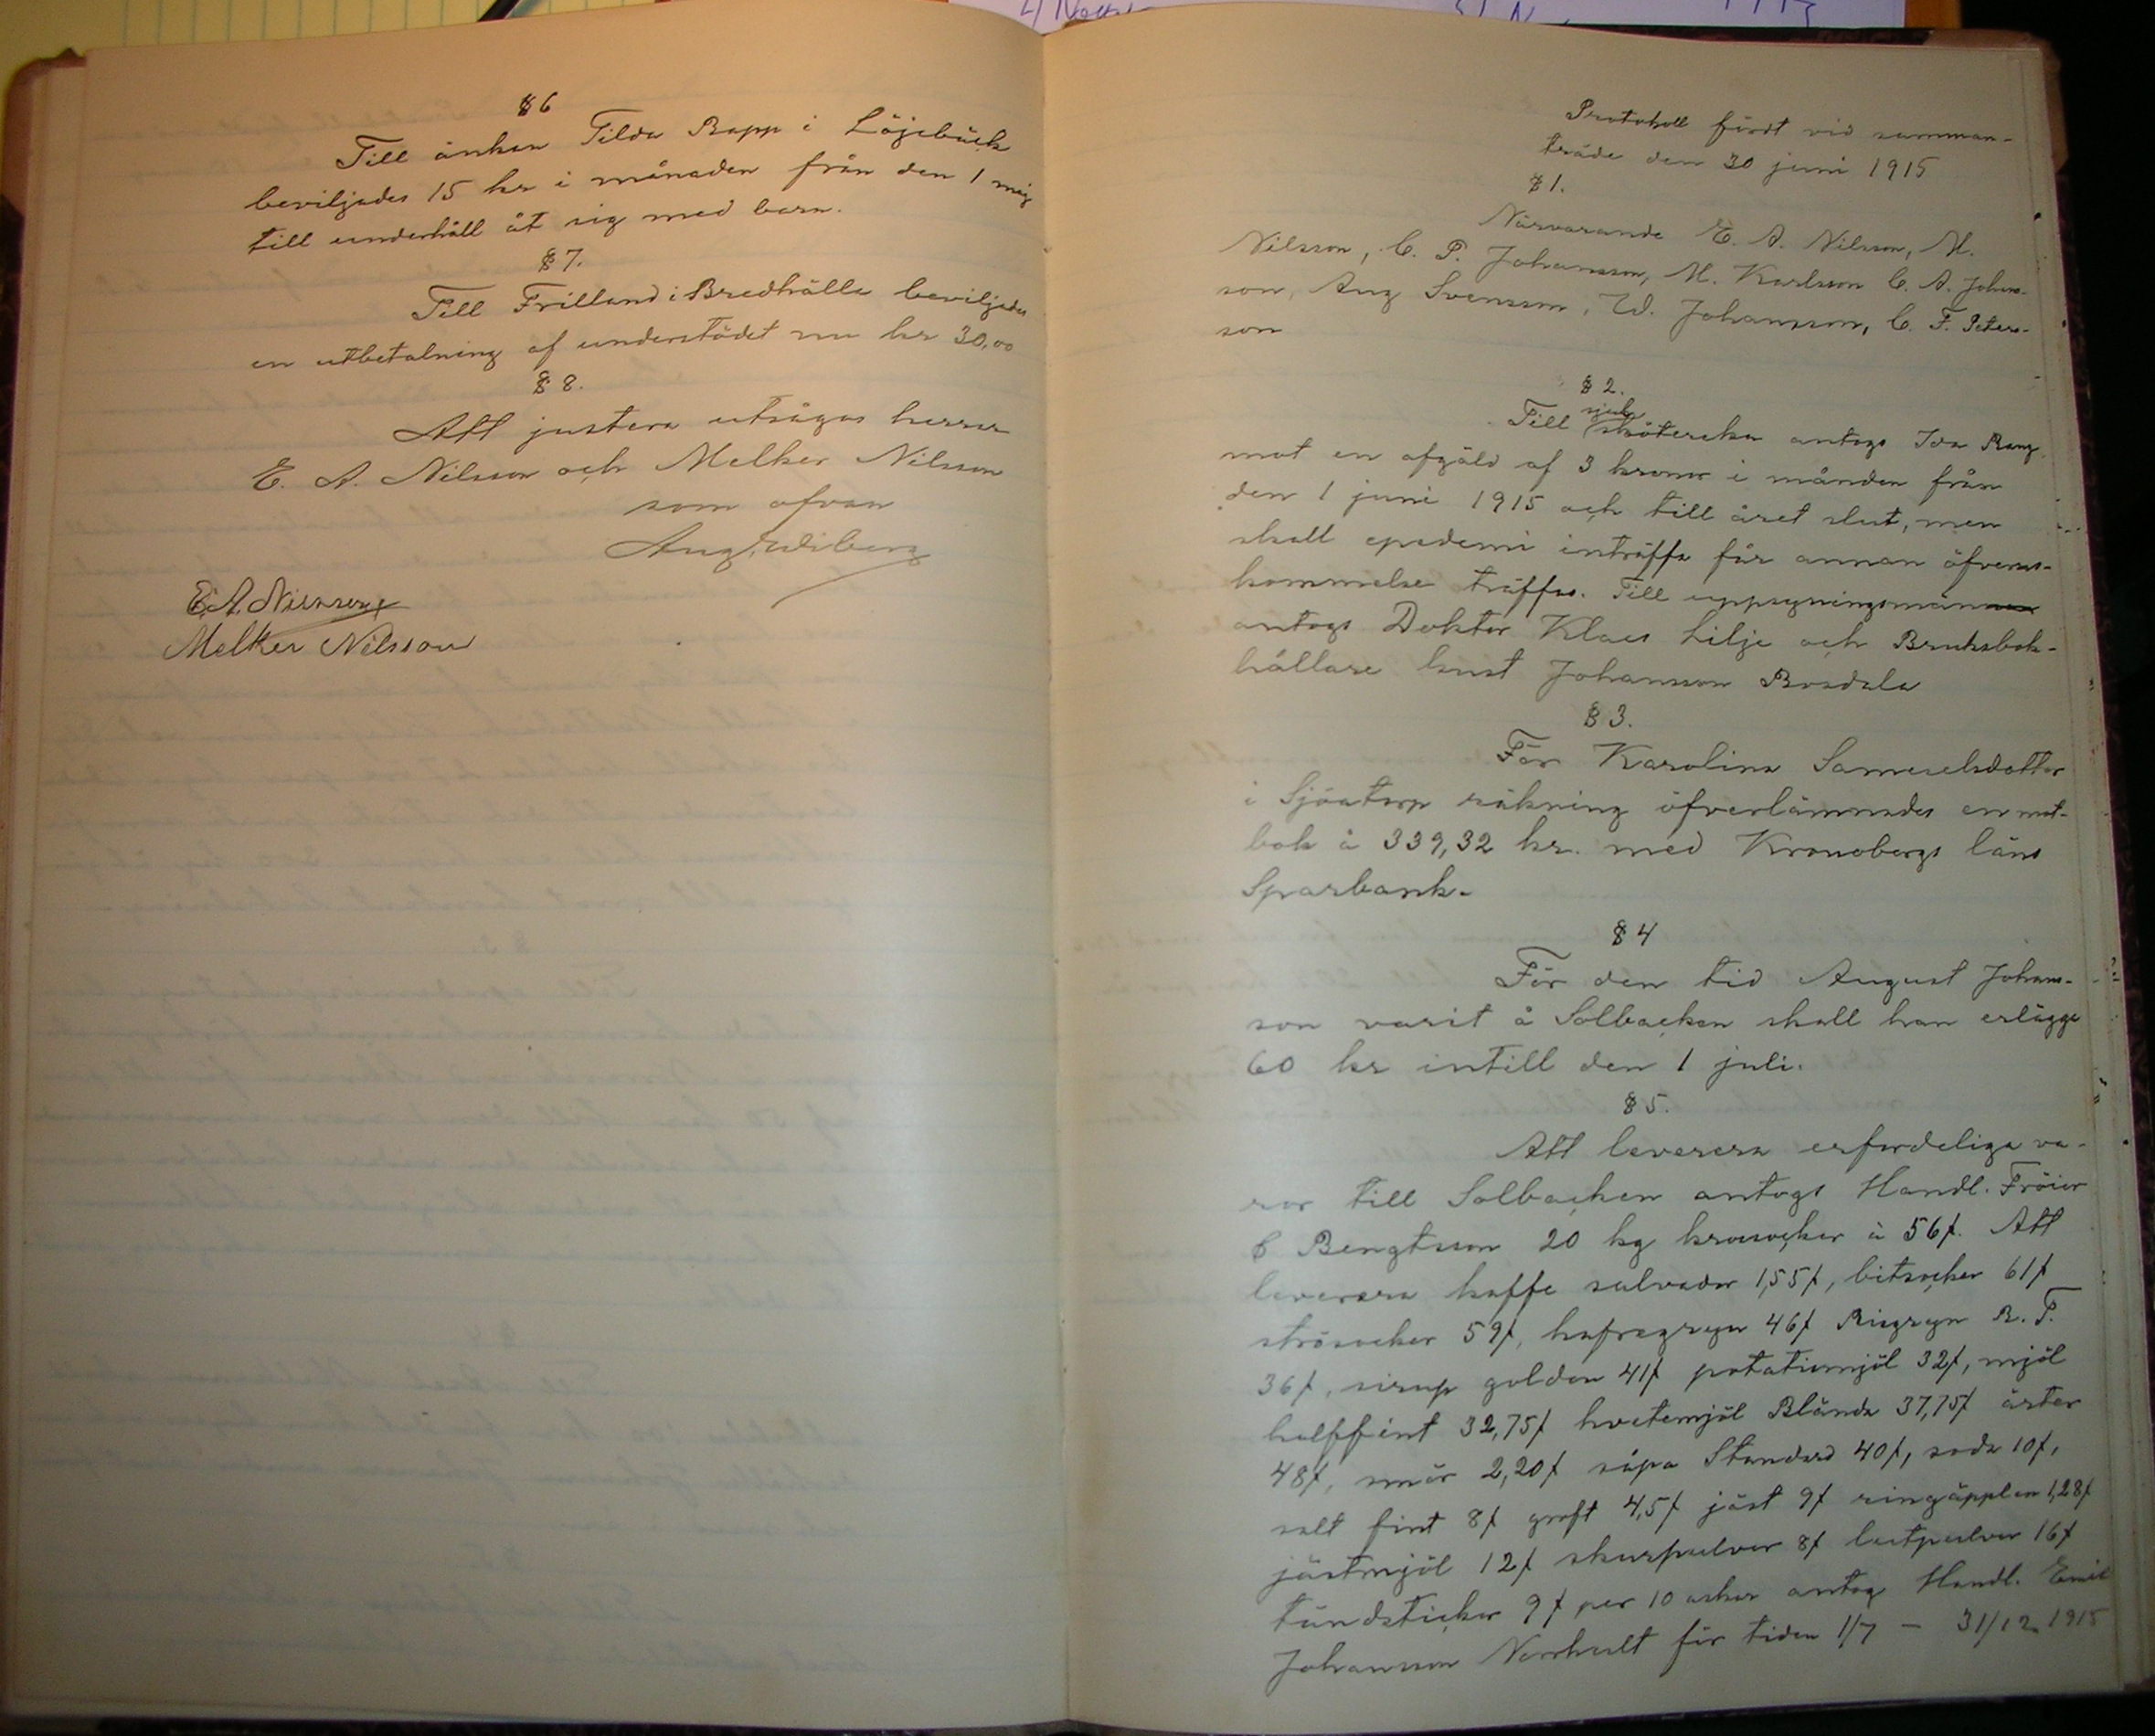 § 6
Till änkan Tilda Rapp i Löjebäck
beviljades 15 kr i månaden från den 1 maj
till underhåll åt sig med barn.
§ 7.
Till Frilund i Bredhälla beviljades
en utbetalning af understödet nu kr 30,00
§ 8.
Att justera utsågos herrar
E. A. Nilsson och Melker Nilsson
som ofvan
Aug. Wiberg
E. A. Nilsson
Melker Nilsson
Protokoll fördt vid samman-
träde den 30 juni 1915
§ 1.
Närvarande E. A. Nilsson, M.
Nilsson, C. P. Johansson, M. Karlsson C. A. Johans-
son, Aug Svensson, W. Johansson, C. F. Peters-
son
§ 2.
Till sjuksköterska antogs Ida Bang
mot en afgäld af 3 kronor i månden från
den 1 juni 1915 och till året slut, men
skall epedemi inträffa får annan öfverens-
kommelse träffas. Till uppsyningsmän
antogs Doktor Klaes Lilje och Bruksbok-
hållare Knut Johansson Rosdala
§ 3.
För Karolina Samuelsdotter
i Sjöatorp räkning öfverlämnades en mot-
bok å 339,32 kr. med Kronobergs läns
Sparbank.
§ 4
För den tid August Johans-
son varit å Solbacken skall han erlägga
60 kr intill den 1 juli.
§ 5.
Att leverera erforderliga va-
ror till Solbacken antogs Handl. Fröier
& Bengtsson 20 kg krossocker à 56 f. Att
leverera kaffe salvador 1,55 f, bitsocker 61 f
strösocker 59 f, hafregryn 46 f Risgryn R. T.
36 f, sirup golden 41 f potatismjöl 32 f, mjöl
halffint 32,75 f hvetemjöl Blända 37,75 f ärter
48 f, smör 2,20 f såpa Standard 40 f, soda 10 f,
salt fint 8 f groft 4,5 f jäst 9 f ringäpplen 1,28 f
jästmjöl 12 f skurpulver 8 f lutpulver 16 f
tändstickor 9 f per 10 askar antog Handl. Emil
Johansson Norrhult för tiden 1/7 - 31/12 1915